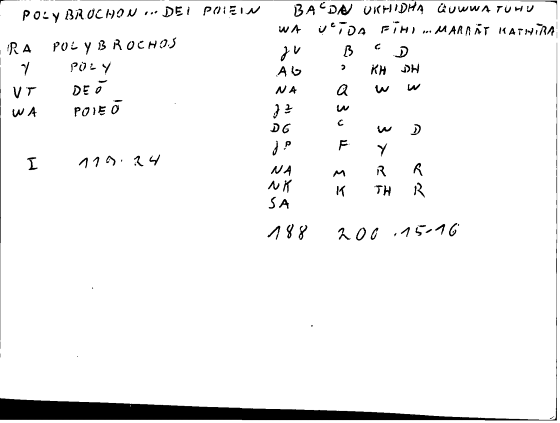 POLYBROCHON ... DEI POIEIN
RA POLYBROCHOS
Y POLY
VT DEŌ
WA POIEŌ
I 119.24
BAᶜDA UKHIDHA QUWWATUHU
WA UᶜĪDA FĪHI ... MARRĀT KATHĪRA
JV B ᶜ D
AB ʾ KH DH
NA Q W W
JZ W
DG ᶜ W D
JP F Y
NA M R R
NK K TH R
SA
188 200.15-16